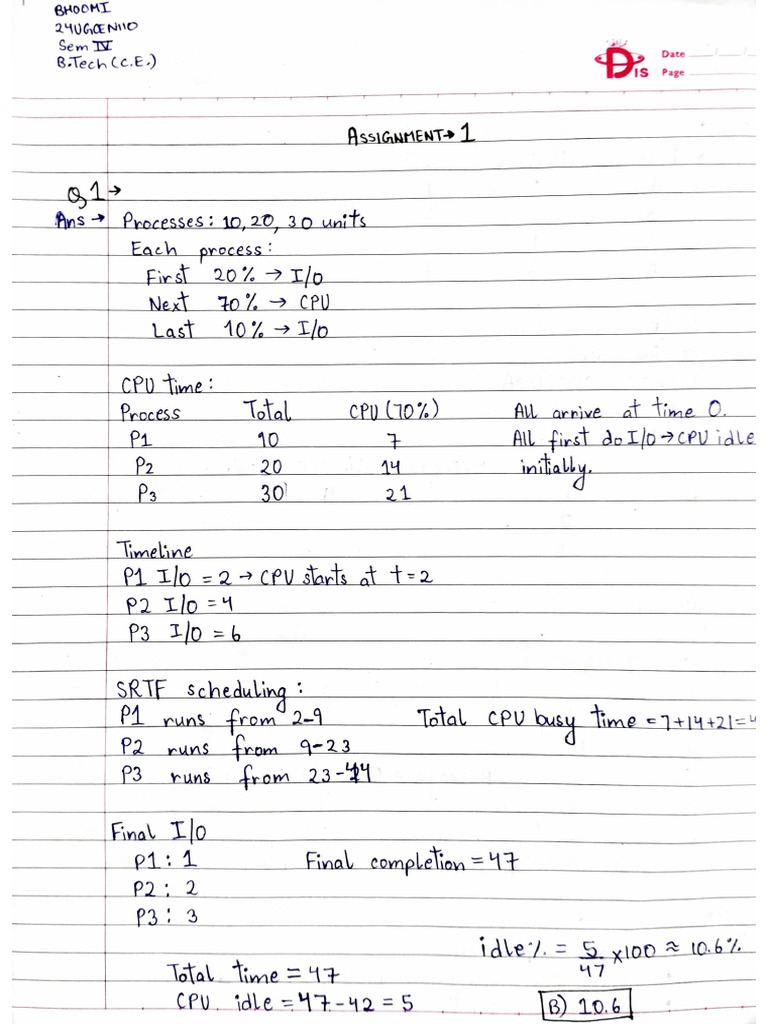 BHOOMI
24UGCEN110
Sem IV
B.Tech (C.E.)
DIS
Date
Page
ASSIGNMENT → 1
Q1 →
Ans → Processes: 10, 20, 30 units
Each process:
First 20% → I/O
Next 70% → CPU
Last 10% → I/O
CPU time:
Process Total CPU (70%) All arrive at time 0.
P1 10 7 All first do I/O → CPU idle
P2 20 14 initially.
P3 30 21
Timeline
P1 I/O = 2 → CPU starts at t = 2
P2 I/O = 4
P3 I/O = 6
SRTF scheduling:
P1 runs from 2-9 Total CPU busy time = 7+14+21=4
P2 runs from 9-23
P3 runs from 23-44
Final I/O
P1: 1 Final completion = 47
P2: 2
P3: 3
idle% = 5/47 × 100 ≈ 10.6%
Total time = 47
CPU idle = 47 - 42 = 5 B) 10.6